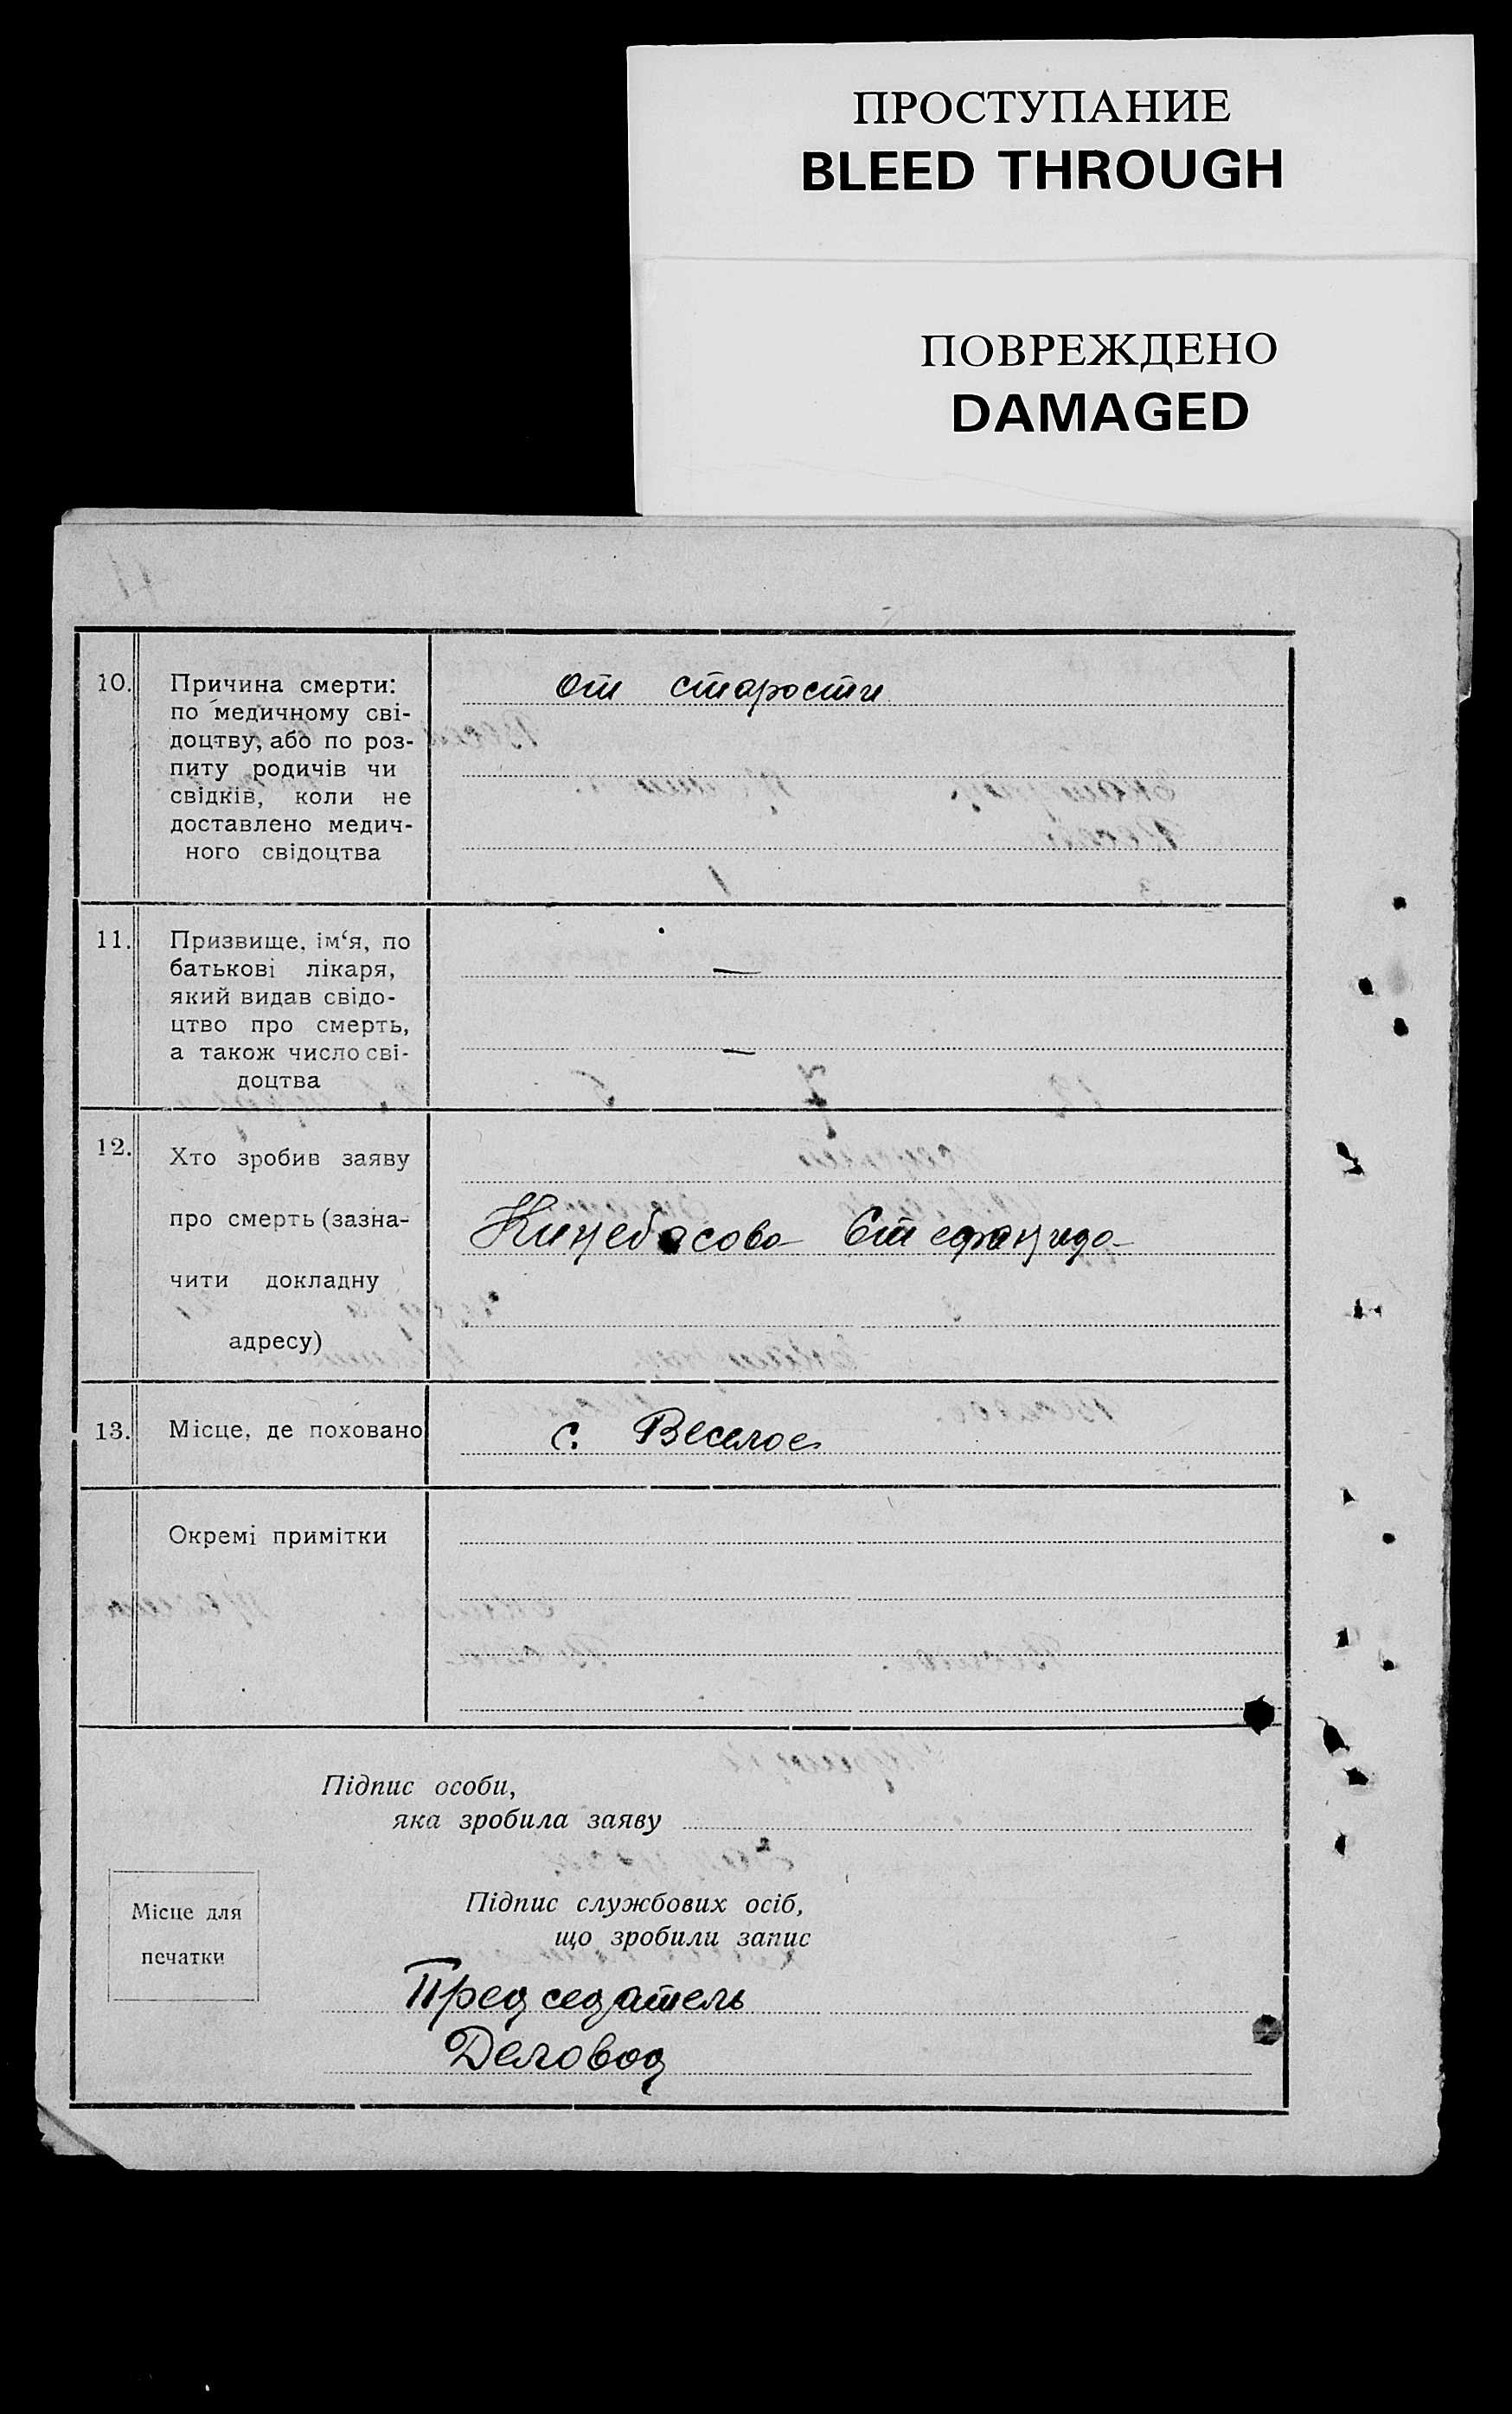 ПРОСТУПАНИЕ
BLEED THROUGH
ПОВРЕЖДЕНО
DAMAGED
10. Причина смерти:
по медичному сві-
доцтву, або по роз-
питу родичів чи
свідків, коли не
доставлено медич-
ного свідоцтва
от старости
11. Призвище, ім‘я, по
батькові лікаря,
який видав свідо-
цтво про смерть,
а також число сві-
доцтва
—
—
12. Хто зробив заяву
про смерть (зазна-
чити докладну
адресу)
Стефанида
13. Місце, де поховано
с. Веселое
Окремі примітки
Підпис особи,
яка зробила заяву
Місце для
печатки
Підпис службових осіб,
що зробили запис
Председатель
Деловод